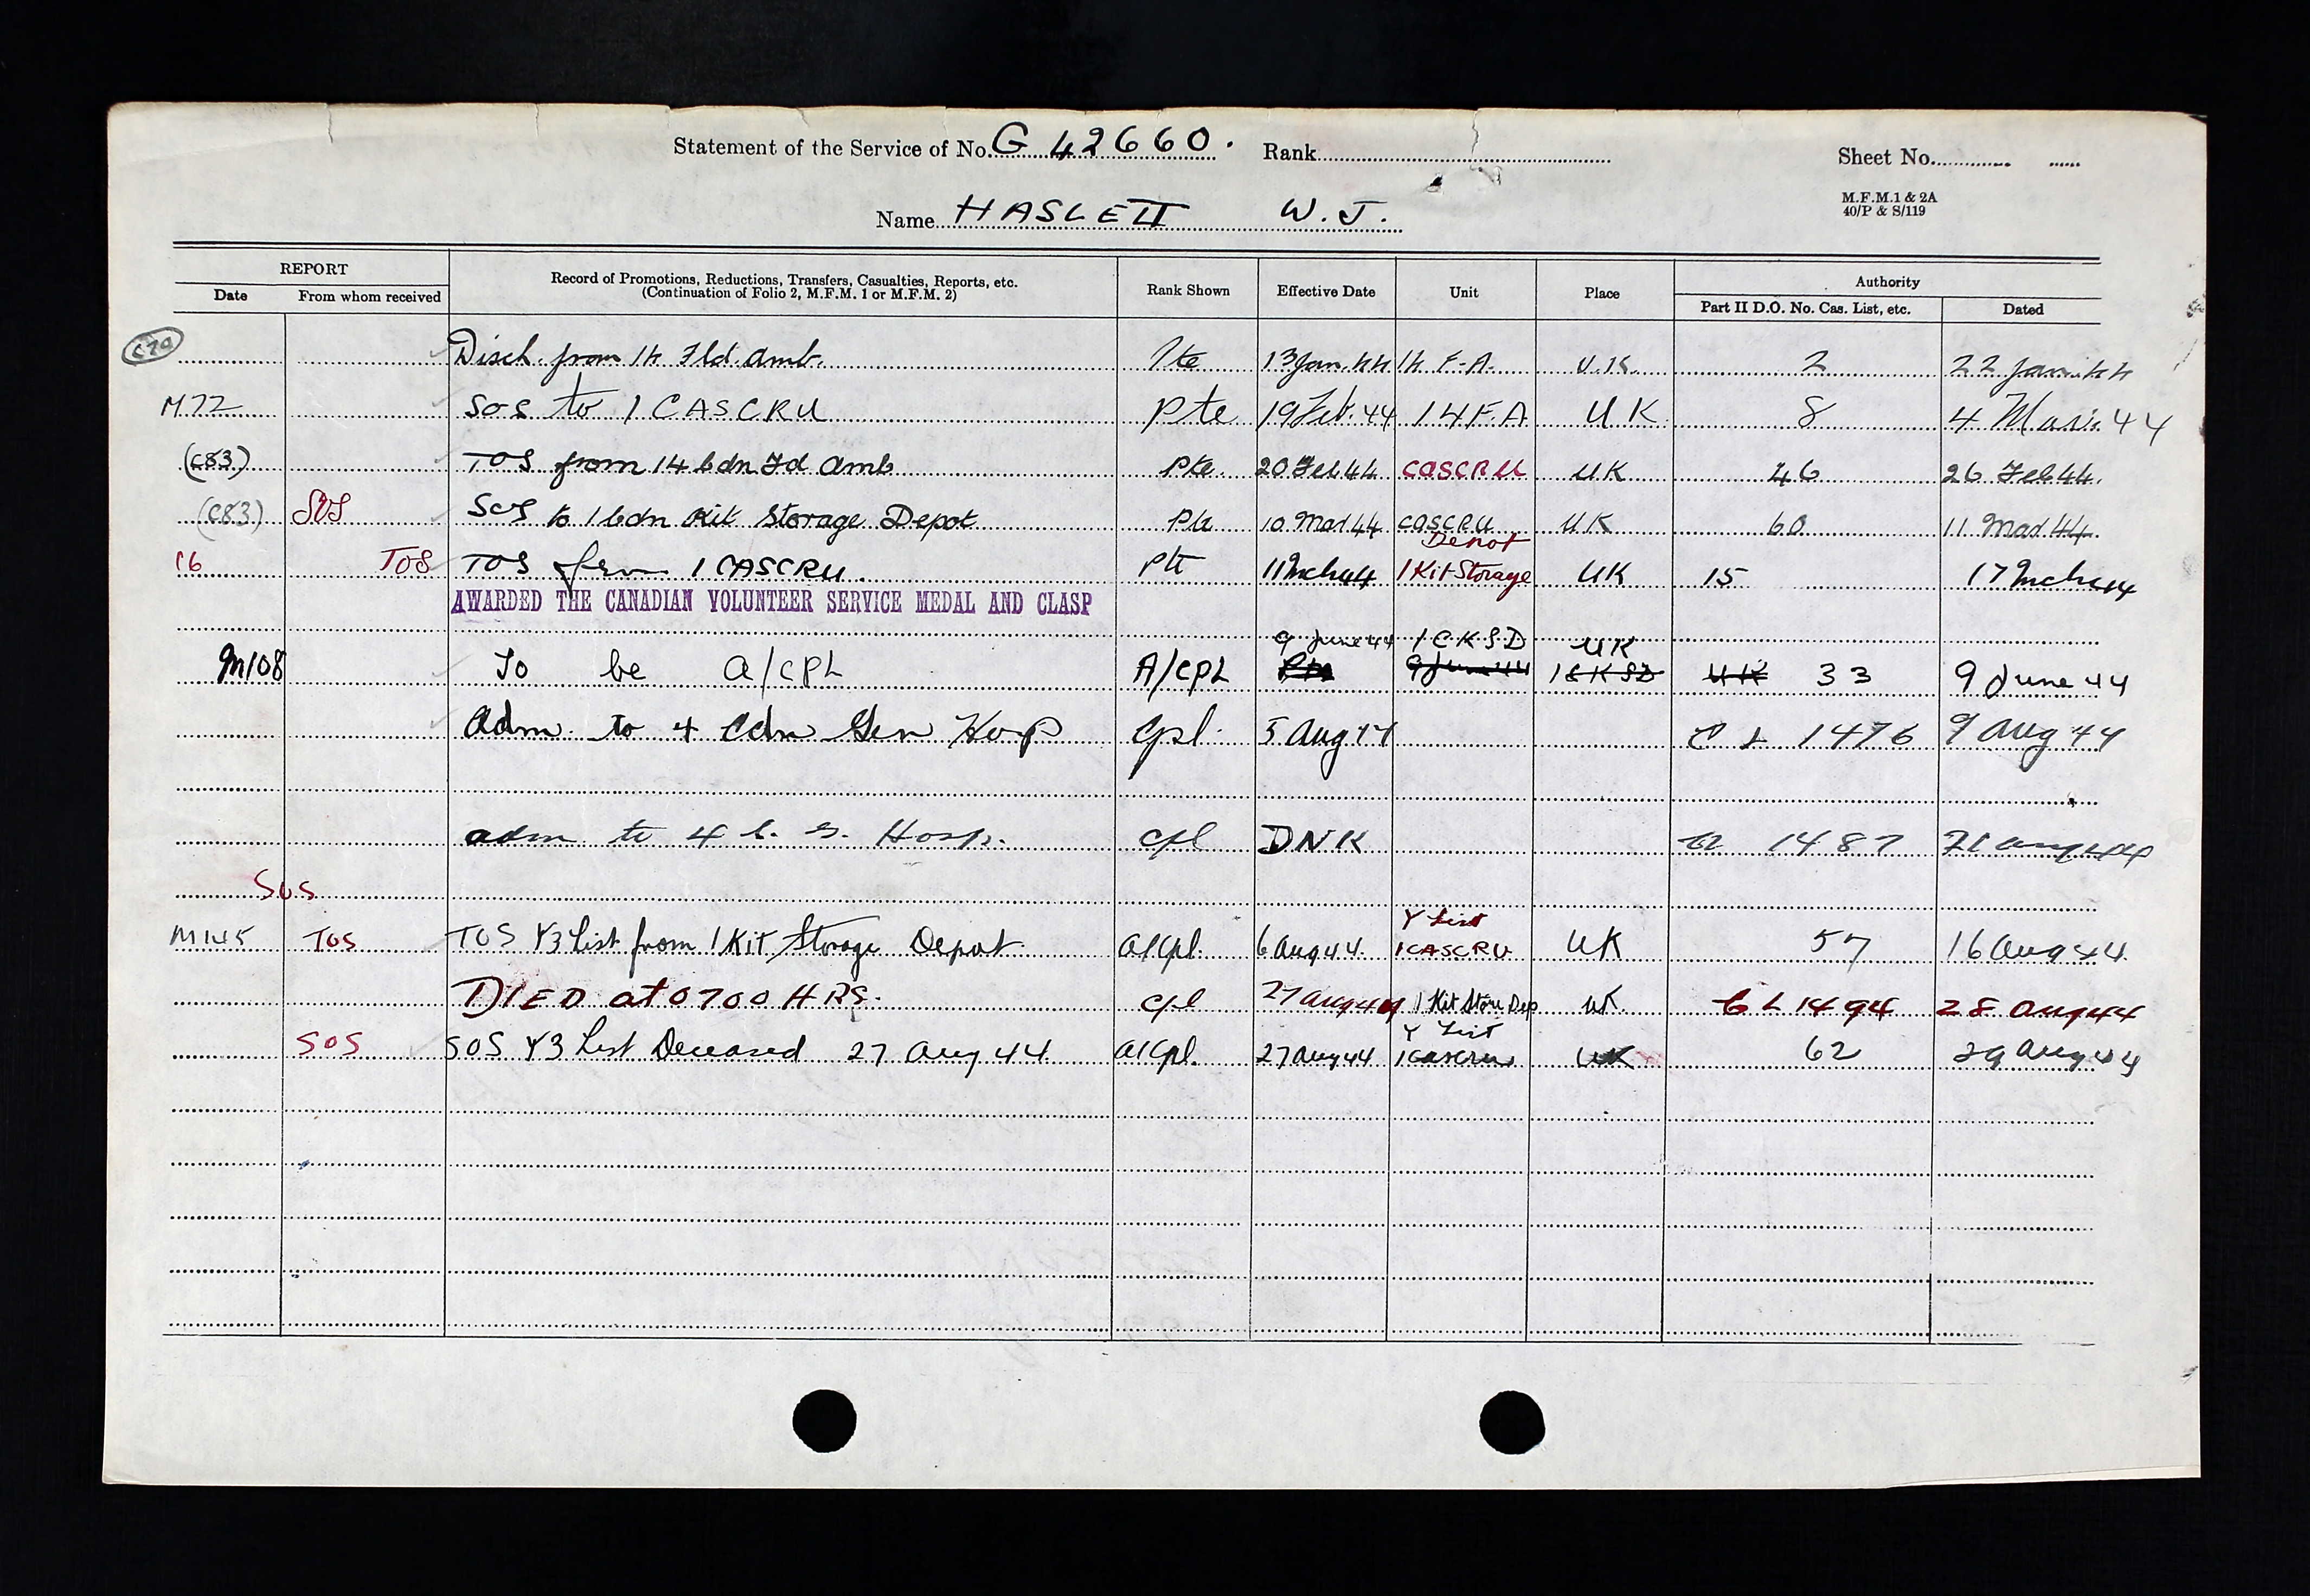 Statement of the Service of No. G 42660. Rank Sheet No.
M.F.M. 1 & 2A
40/P & S/119
Name HASLETT W. J.
REPORT
Date From whom received
Record of Promotions, Reductions, Transfers, Casualties, Reports, etc.
(Continuation of Folio 2, M.F.M. 1 or M.F.M. 2)
Rank Shown Effective Date Unit Place
Authority
Part II D.O. No. Cas. List, etc. Dated
Disch. from 14 Fld. Amb. Pte 13 Jan. 44 14 F.A. U.K. 2 22 Jan. 44
M72 SOS to 1 CASCRU Pte 19 Feb. 44 14 F.A UK 8 4 Mar. 44
(C83) TOS from 14 Cdn Fd Amb Pte. 20 Feb 44 CASCRU UK 46 26 Feb 44.
(C83) SOS SOS to 1 Cdn Kit Storage Depot Pte 10 Mar 44 CASCRU UK 60 11 Mar 44.
Depot
C6 TOS TOS from 1 CASCRU. Pte 11 Mch 44 1 Kit Storage UK 15 17 Mch 44
AWARDED THE CANADIAN VOLUNTEER SERVICE MEDAL AND CLASP
9 June 44 1 C K S D UK
M108 To be A/CPL A/CPL Pte 9 June 44 1 C K S D UK 33 9 June 44
Adm. to 4 Cdn Gen Hosp Cpl. 5 Aug 44 C L 1476 9 Aug 44
adm to 4 C. G. Hosp. Cpl DNK CL 1487 21 Aug 44
SOS
Y List
M145 TOS TOS Y3 List from 1 Kit Storage Depot A/Cpl. 6 Aug 44. 1 CASCRU UK 57 16 Aug 44.
DIED at 0700 HRS. Cpl 27 Aug 44 1 Kit Store Dep UK C L 1494 28 Aug 44
Y List
SOS SOS Y3 List Deceased 27 Aug 44 A/Cpl. 27 Aug 44 1 CASCRU UK 62 29 Aug 44